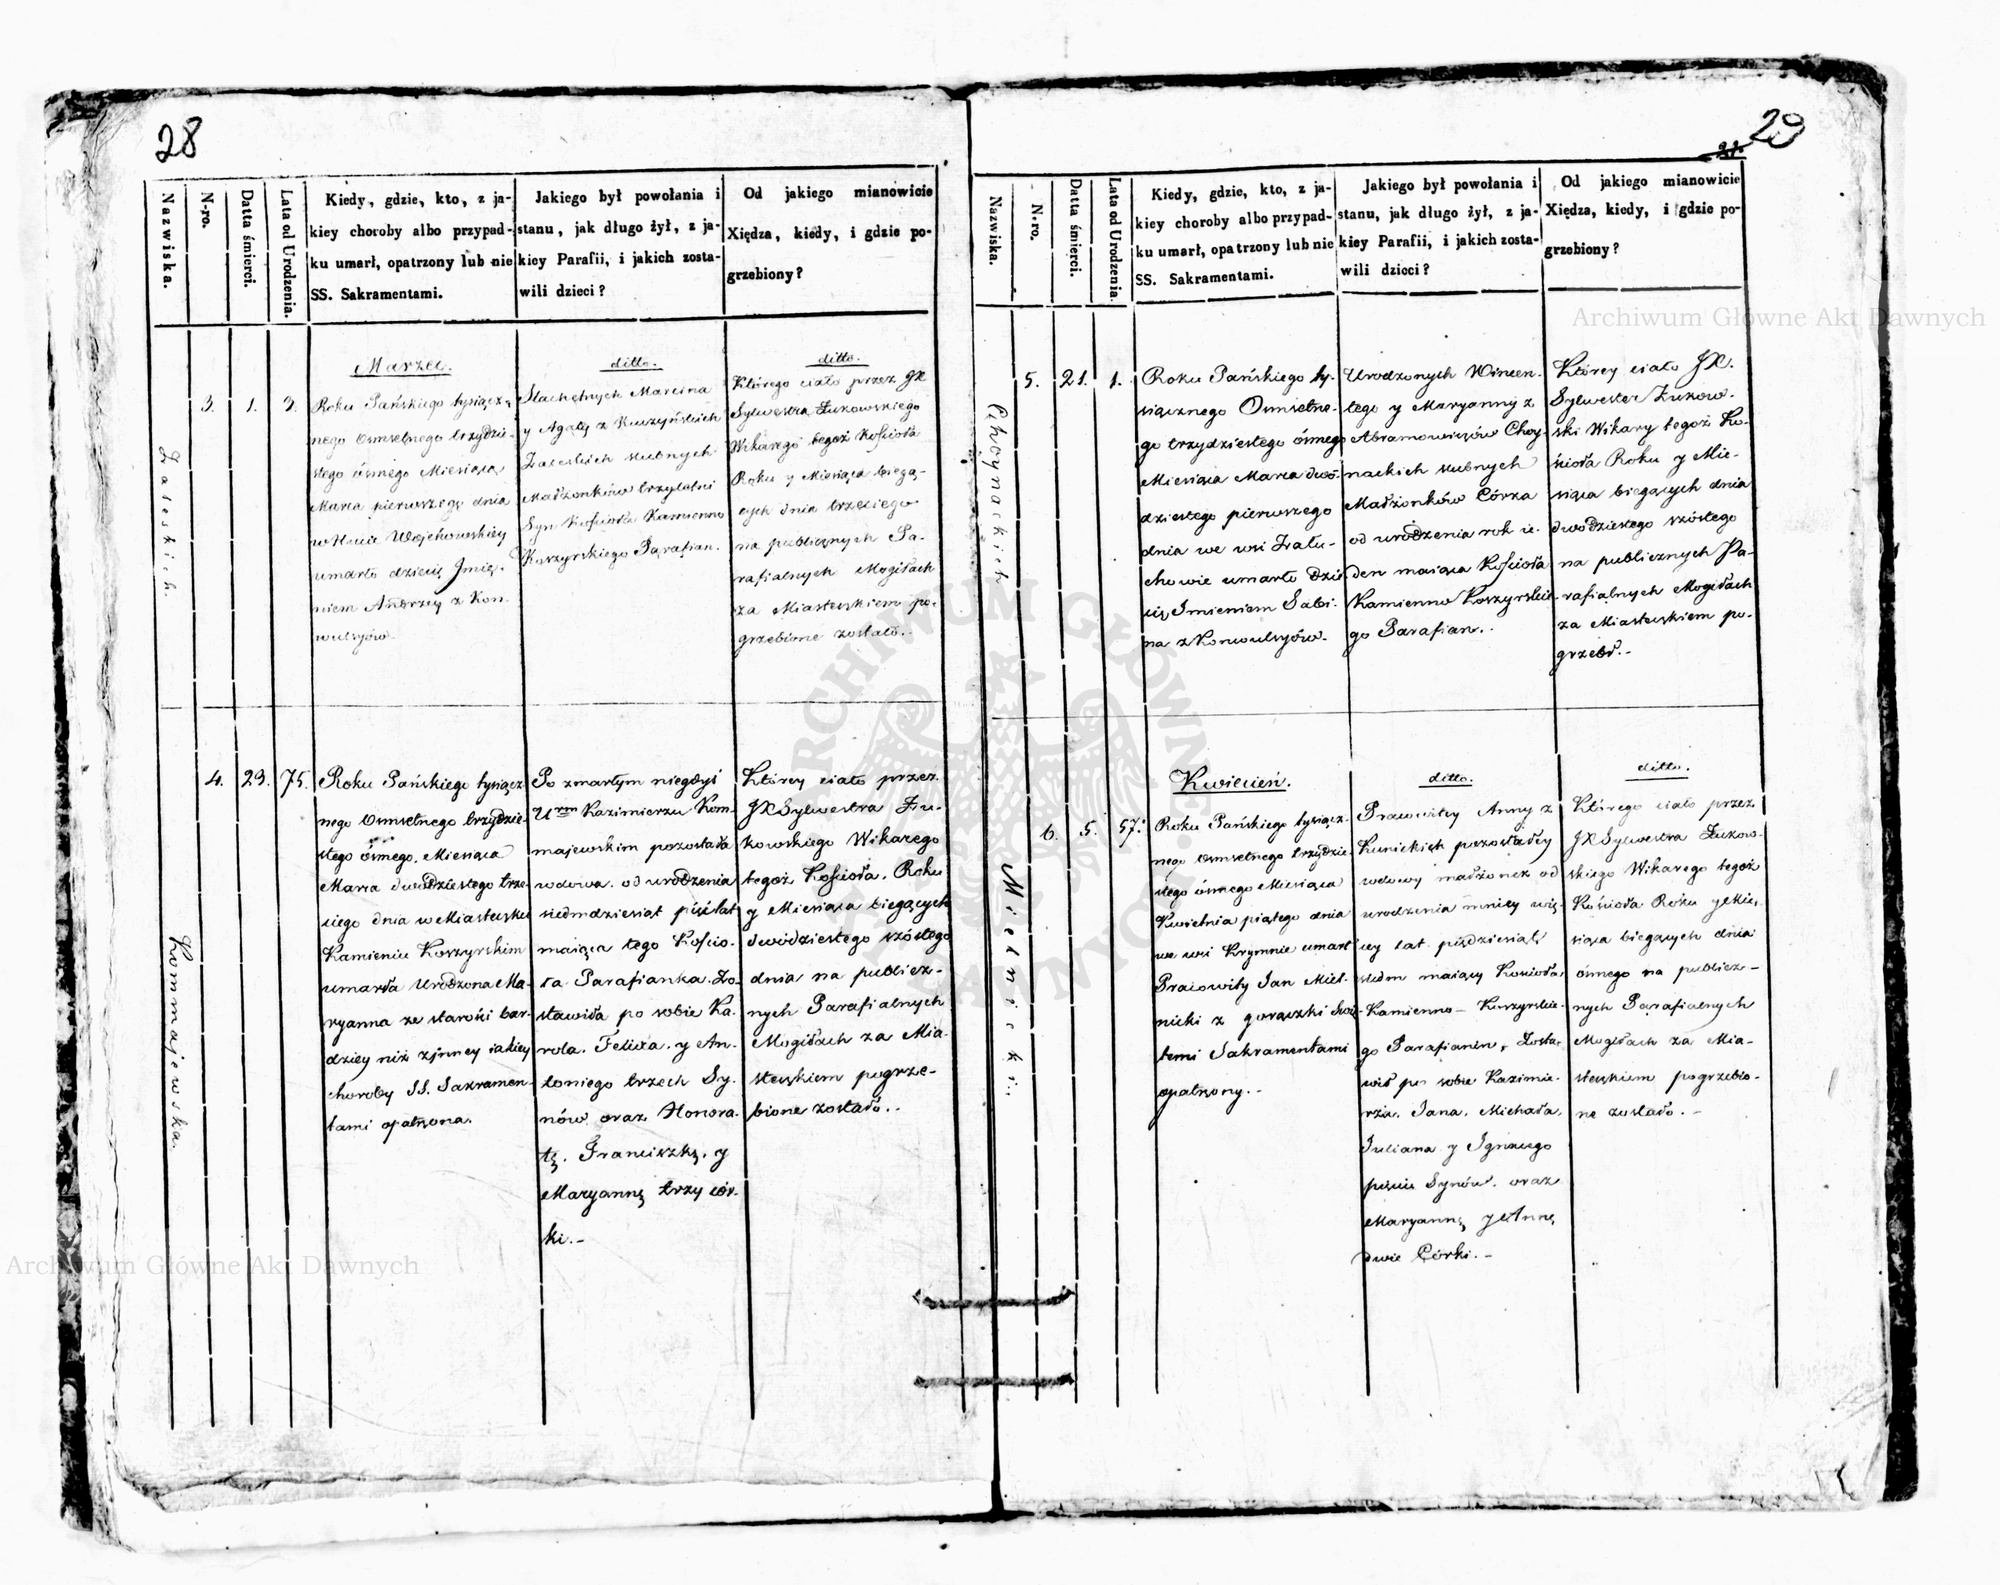 28
Nazwiska.
N-ro.
Datta śmierci.
Lata od Urodzenia.
Kiedy, gdzie, kto, z ja-
kiey choroby albo przypad-
ku umarł, opatrzony lub nie
SS. Sakramentami.
Jakiego był powołania i
stanu, jak długo żył, z ja-
kiey Parafii, i jakich zosta-
wili dzieci?
Od jakiego mianowicie
Xiędza, kiedy, i gdzie po-
grzebiony?
Zaleskich.
3.
1.
3.
Marzec.
Roku Pańskiego tysiącz-
nego Osmsetnego trzydzie-
stego ósmego Miesiąca
Marca pierwszego dnia
umarło dziecię Jmię-
niem Andrzey z Kon-
wulsyów.
ditto.
Slachetnych Marcina
y Agaty z Kuczyńskich
Zaleskich slubnych
Małżonków trzyletni
Syn Kościoła Kamienno
Koszyrskiego Parafian.
ditto.
Którego ciało przez JX
Sylwestra Żukowskiego
Wikarego tegoż Kościoła
Roku y Miesiąca bieżą-
cych dnia trzeciego
na publicznych Pa-
rafialnych Mogiłach
za Miasteczkiem po-
grzebione zostało.-
Kommajewska.
4.
23.
75.
Roku Pańskiego tysiącz-
nego Osmsetnego trzydzie-
stego ósmego. Miesiąca
Marca dwódziestego trze-
ciego dnia w Miasteczku
Kamieniu Koszyrskim
umarła Urodzona Ma-
ryanna ze starości bar-
dziey niż z jnney iakiey
choroby SS. Sakramen-
tami opatrzona.
Po zmarłym niegdyś
Urm Kazimierzu Kom-
majewskim pozostała
wdowa. od urodzenia
siedmdziesiąt pięć lat
maiąca tego Kościo-
ła Parafianka. Zo-
stawiła po sobie Ka-
rola. Felixa. y An-
toniego trzech Sy-
nów oraz Honora-
tę. Franciszkę. y
Maryannę trzy cór-
ki.-
Którey ciało przez
JX Sylwestra Żu-
kowskiego Wikarego
tegoż Kościoła. Roku
y Miesiąca bieżących
dwódziestego szóstego
dnia na publicz-
nych Parafialnych
Mogiłach za Mia-
steczkiem pogrze-
bione zostało.-
29
Nazwiska.
N-ro.
Datta śmierci.
Lata od Urodzenia.
Kiedy, gdzie, kto, z ja-
kiey choroby albo przypad-
ku umarł, opatrzony lub nie
SS. Sakramentami.
Jakiego był powołania i
stanu, jak długo żył, z ja-
kiey Parafii, i jakich zosta-
wili dzieci?
Od jakiego mianowicie
Xiędza, kiedy, i gdzie po-
grzebiony?
Choynackich
5.
21.
1.
Roku Pańskiego ty-
siącznego Osmsetne-
go trzydziestego ósmego
Miesiąca Marca dwó-
dziestego pierwszego
dnia we wsi Zału-
chowie umarło Dzie
cię Jmieniem Sabi-
na z Konwulsyów.
Urodzonych Wincen-
tego y Maryanny z
Abramowiczów Choy-
nackich slubnych
Małżonków Córka
od urodzenia rok ie-
den maiąca Kościoła
Kamienno Koszyrskie-
go Parafian.
Którey ciało JX.
Sylwester Żukow-
ski Wikary tegoż Ko-
ścioła Roku y Mie-
siąca bieżących dnia
dwódziestego szóstego
na publicznych Pa-
rafialnych Mogiłach
za Miasteczkiem po-
grzebł.-
Mielnicki.
6.
5.
57.
Kwiecień.
Roku Pańskiego tysiącz-
nego Osmsetnego trzydzie-
stego ósmego Miesiąca
Kwietnia piątego dnia
we wsi Krymnie umarł
Pracowity Jan Miel-
nicki z gorączki Swię-
temi Sakramentami
opatrzony.-
ditto.
Pracowitey Anny z
Kunickich pozostałey
wdowy małżonek od
urodzenia mniey wię-
cey lat pięćdziesiąt
siedm maiący Kościoła
Kamienno-Koszyrskie-
go Parafianin, Zosta-
wił po sobie Kazimie-
rza. Jana. Michała.
Juliana y Ignacego
pięciu Synów. oraz
Maryannę y Annę
dwie Córki.-
ditto.
Którego ciało przez
JX Sylwestra Żukow-
skiego Wikarego tegoż
Kościoła Roku y Mie-
siąca bieżących dnia
ósmego na publicz-
nych Parafialnych
Mogiłach za Mia-
steczkiem pogrzebio-
ne zostało.-
Archiwum Główne Akt Dawnych
Archiwum Główne Akt Dawnych